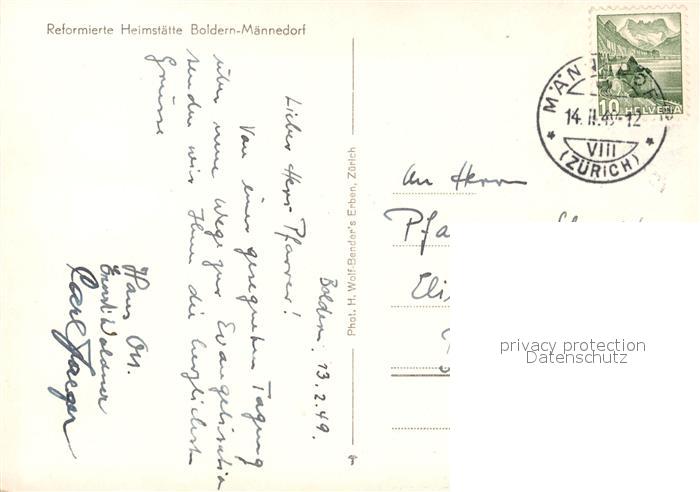 Reformierte Heimstätte Boldern-Männedorf
Boldern, 13.2.49.
Lieber Herr Pfarrer!
Von einer gesegneten Tagung
über neue Wege zur Evangelisation
senden wir Ihnen die herzlichsten
Grüsse
Hans Ott.
Ernst Waldner
Carl Jaeger
Phot. H. Wolf-Bender's Erben, Zürich
10 HELVETIA
14. II. 49-12
VIII
(ZÜRICH)
An Herrn
Pfa
Elis
privacy protection
Datenschutz